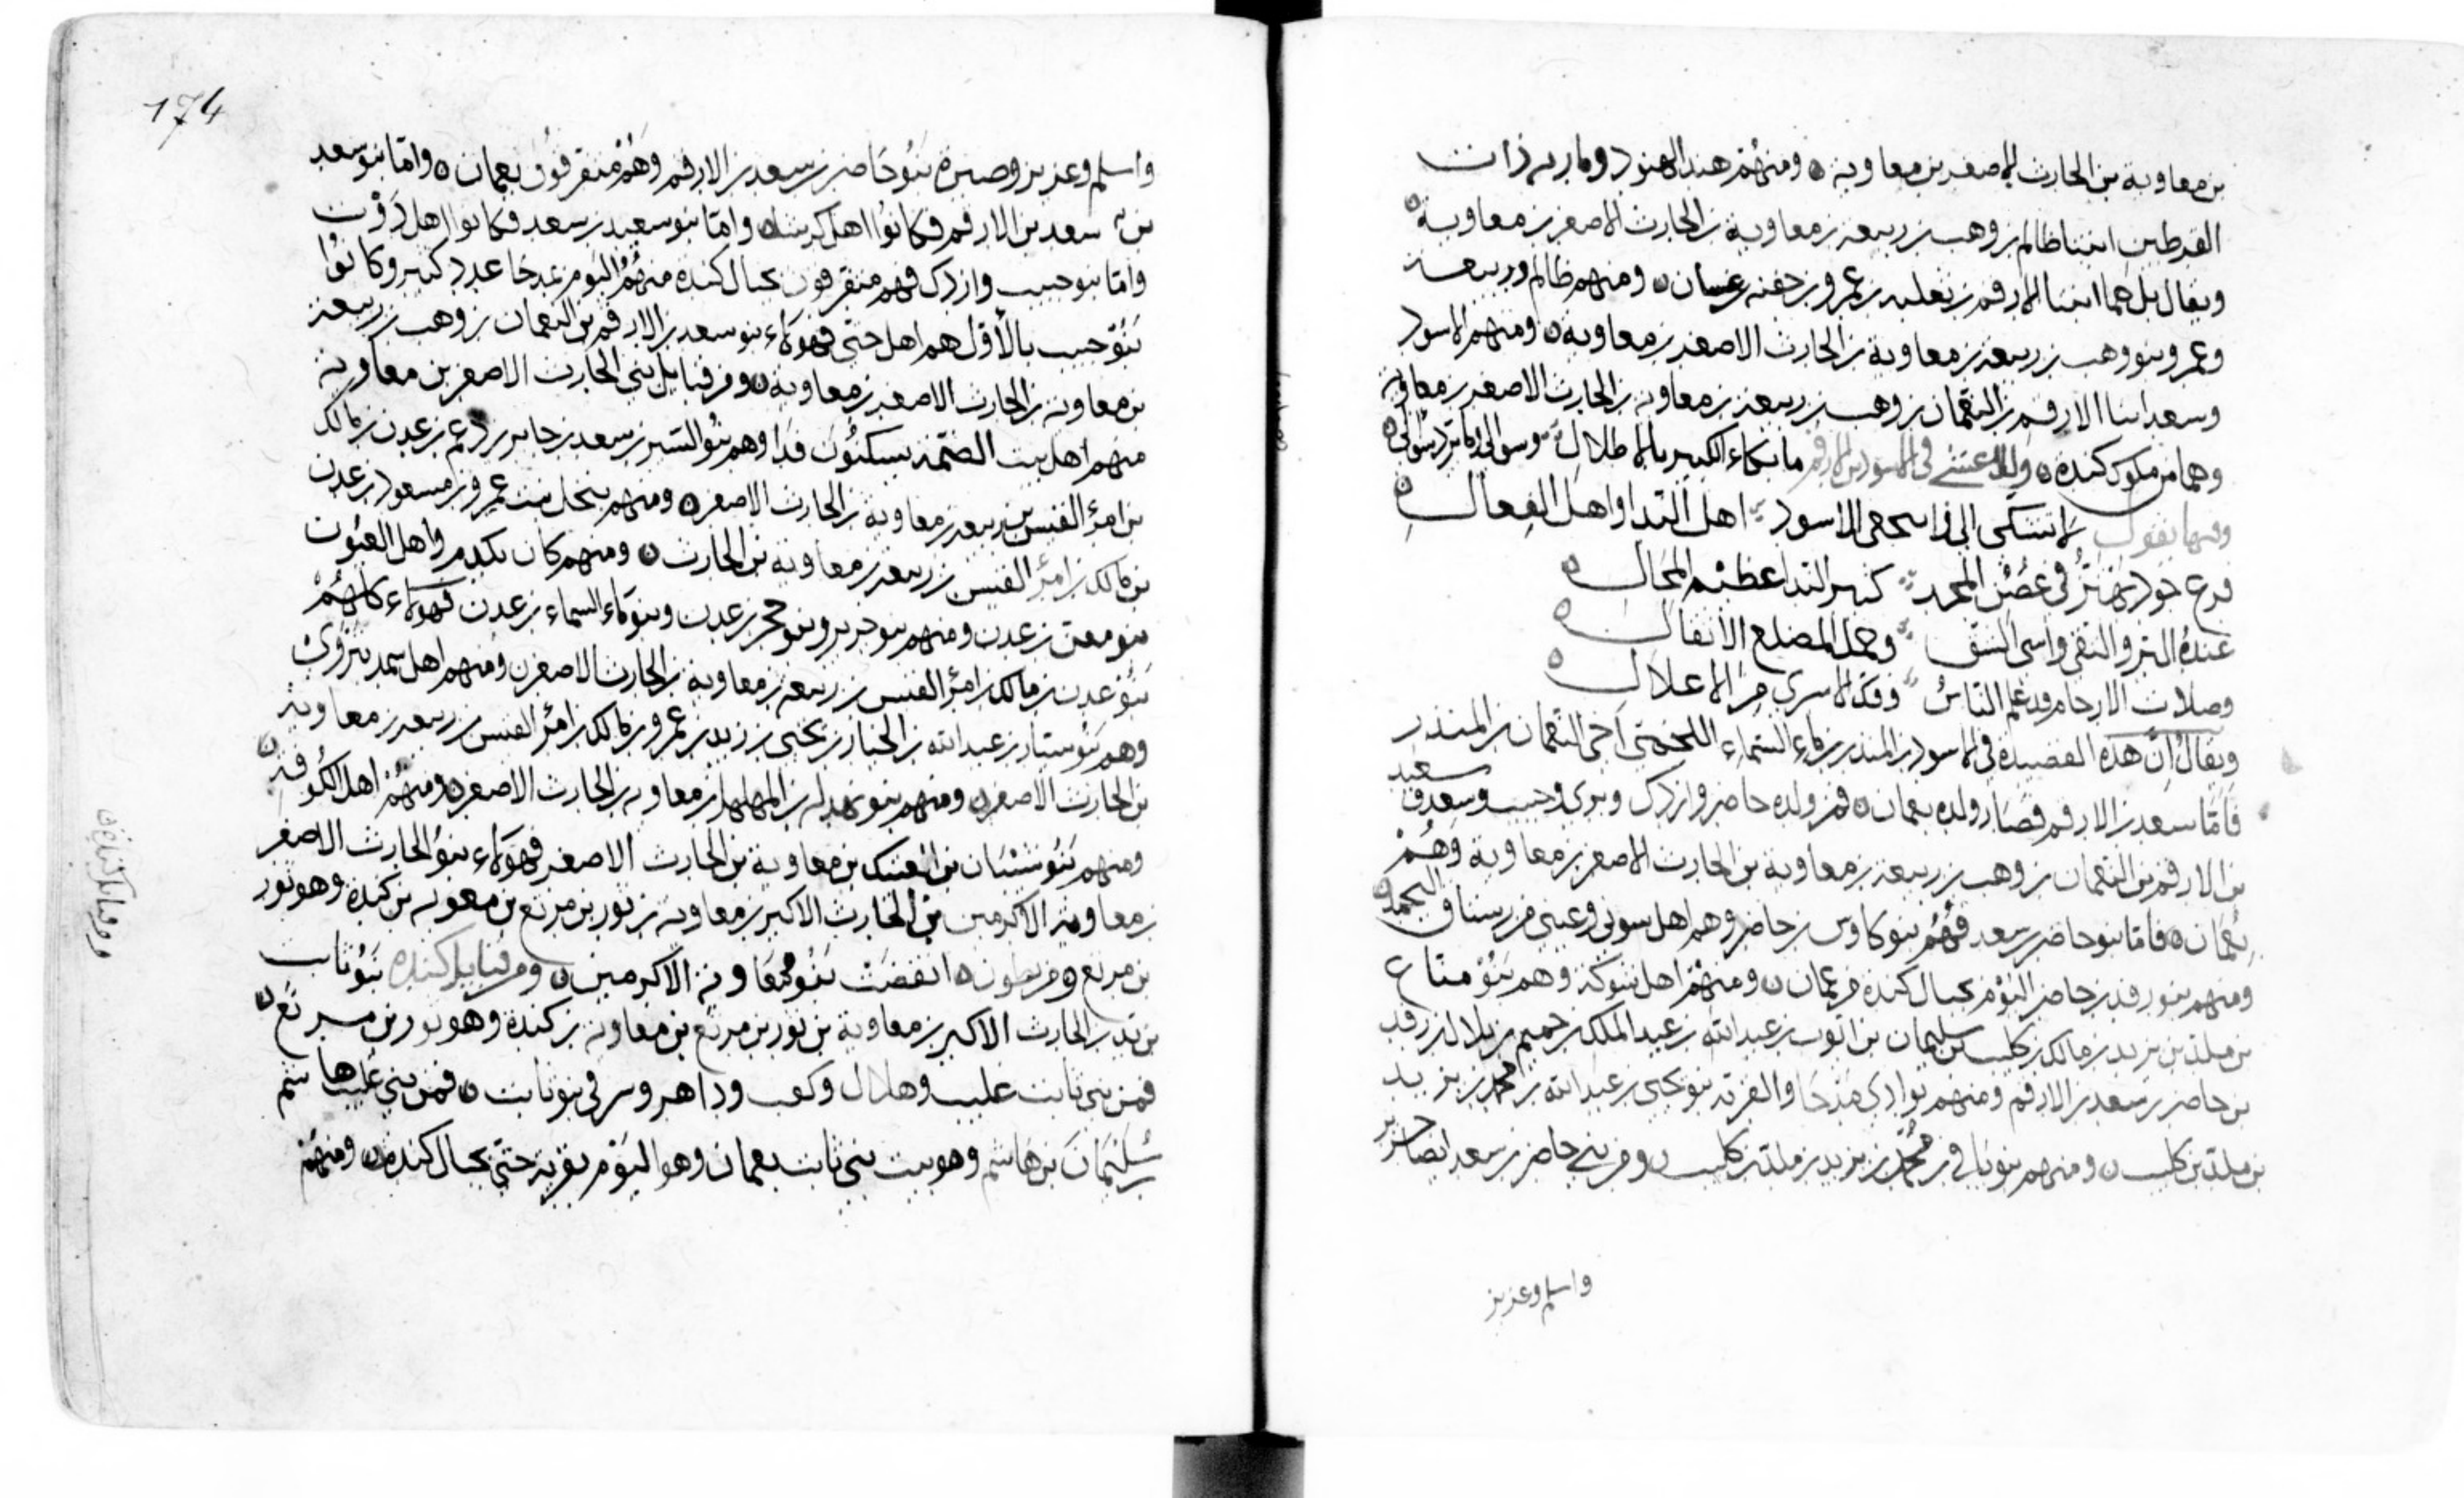 بن معاوية بن الحارث الاصغر بن معاوية ومنهم هند الهنود ومارية ذات
القرطين ابنتا ظالم بن وهب بن ربيعة بن معاوية بن الحارث الاصغر بن معاوية
ويقال بل هما ابنتا الارقم بن ثعلبه بن عمرو بن جفنه بن غسان ومنهم ظالم وربيعة
وعمرو بنو وهب بن ربيعة بن معاوية بن الحارث الاصغر بن معاوية ومنهم الاسود
وسعد ابنا الارقم بن النعمان بن وهب بن ربيعة بن معاوية بن الحارث الاصغر بن معاوية
وهما من ملوك كندة وللاعشى في الاسود بن الارقم ما بكاء الكبير بالاطلال وسؤالي وما ترد سؤالي
وفيها يقول لا تشكي الي وانتجعي الاسود اهل الندا واهل الفعال
فرع جود يهتز في غصن المجد كثير الندا عظيم المحال
عنده البر والتقى واسى الشق وحمل المضلع الاثقال
وصلات الارحام قد علم الناس وفك الاسرى من الاغلال
ويقال ان هذه القصيدة في الاسود بن المنذر بن ماء السماء اللخمي اخي النعمان بن المنذر
فاما سعد بن الارقم فصار ولده بعمان فمن ولده حاضر وازدك وبري وحبيب وسعد وسعيد
بن الارقم بن النعمان بن وهب بن ربيعة بن معاوية بن الحارث الاصغر بن معاوية وهم
بعمان فاما بنو حاضر بن سعد فهم بنو كاوس بن حاضر وهم اهل سوني وعيني من رستاق
ومنهم بنو رفد بن حاضر اليوم بجبال كندة من عمان ومنهم اهل بنوكة وهم بنو مناع
بن ملد بن يزيد بن مالك بن كليب بن سليمان بن ايوب بن عبد الله بن عبد الملك بن حميم بن بلال بن رفد
بن حاضر بن سعد بن الارقم ومنهم بوادي مدحا والقرية بنو يحيى بن عبد الله بن محمد بن يزيد
بن ملد بن كليب ومنهم بنو نافع بن محمد بن يزيد بن ملد بن كليب ومن بني حاضر بن سعد ايضا حريز
واسلم وعزيز
174
واسلم وعزيز وصبرة بنو حاضر بن سعد بن الارقم وهم متفرقون بعمان واما بنو سعد
بن سعد بن الارقم فكانوا اهل واما بنو سعيد بن سعد فكانوا اهل
واما بنو حبيب وازدك فهم متفرقون بجبال كندة منهم اليوم بمدحا عدد كبير وكانوا
بنو حبيب بالاول هم اهل حتى فهولاء بنو سعد بن الارقم بن النعمان بن وهب بن ربيعة
بن معاوية بن الحارث الاصغر بن معاوية ومن قبايل بني الحارث الاصغر بن معاوية
منهم اهل بيت الضخمة يسكنون فدا وهم بنو السير بن سعد بن جابر بن دغم بن عدن بن مالك
بن امرؤ القيس بن ربيعة بن معاوية بن الحارث الاصغر ومنهم بنخل بنت عمرو بن مسعود بن عدن
بن مالك بن امرؤ القيس بن ربيعة بن معاوية بن الحارث ومنهم كان بكدم واهل العيون
بنو معن بن عدن ومنهم بنو جرير وبنو حجر بن عدن وبنو ماء السماء بن عدن فهولاء كلهم
بنو عدن بن مالك بن امرؤ القيس بن ربيعة بن معاوية بن الحارث الاصغر ومنهم اهل سمد نزوى
وهم بنو ستار بن عبد الله بن الخيار بن يحيى بن زيد بن عمرو بن مالك بن امرؤ القيس بن ربيعة بن معاوية
بن الحارث الاصغر ومنهم بنو بهدله بن المهلهل بن معاوية بن الحارث الاصغر ومنهم اهل الكوفة
ومنهم بنو شيبان بن العتيك بن معاوية بن الحارث الاصغر فهولاء بنو الحارث الاصغر
بن معاوية الاكرمين بن الحارث الاكبر بن معاوية بن ثور بن مرتع بن معوية بن كندة وهو ثور
بن مرتع انقضت بنو معاوية الاكرمين ومن قبايل كندة بنو ثابت
بن الحارث الاكبر بن معاوية بن ثور بن مرتع بن معاوية بن كندة وهو ثور بن مرتع
فمن بني ثابت عليب وهلال وكعب وداهر بنو ثابت فمن بني عليب هاشم
سليمان بن هاشم وهو بيت بني ثابت بعمان وهو اليوم بقرية حتي بجبال كندة ومنهم